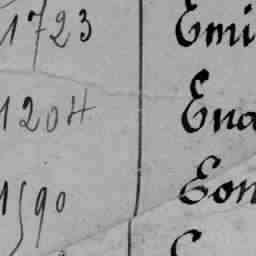 1723 Emi
1204 Ena
1590 Eon